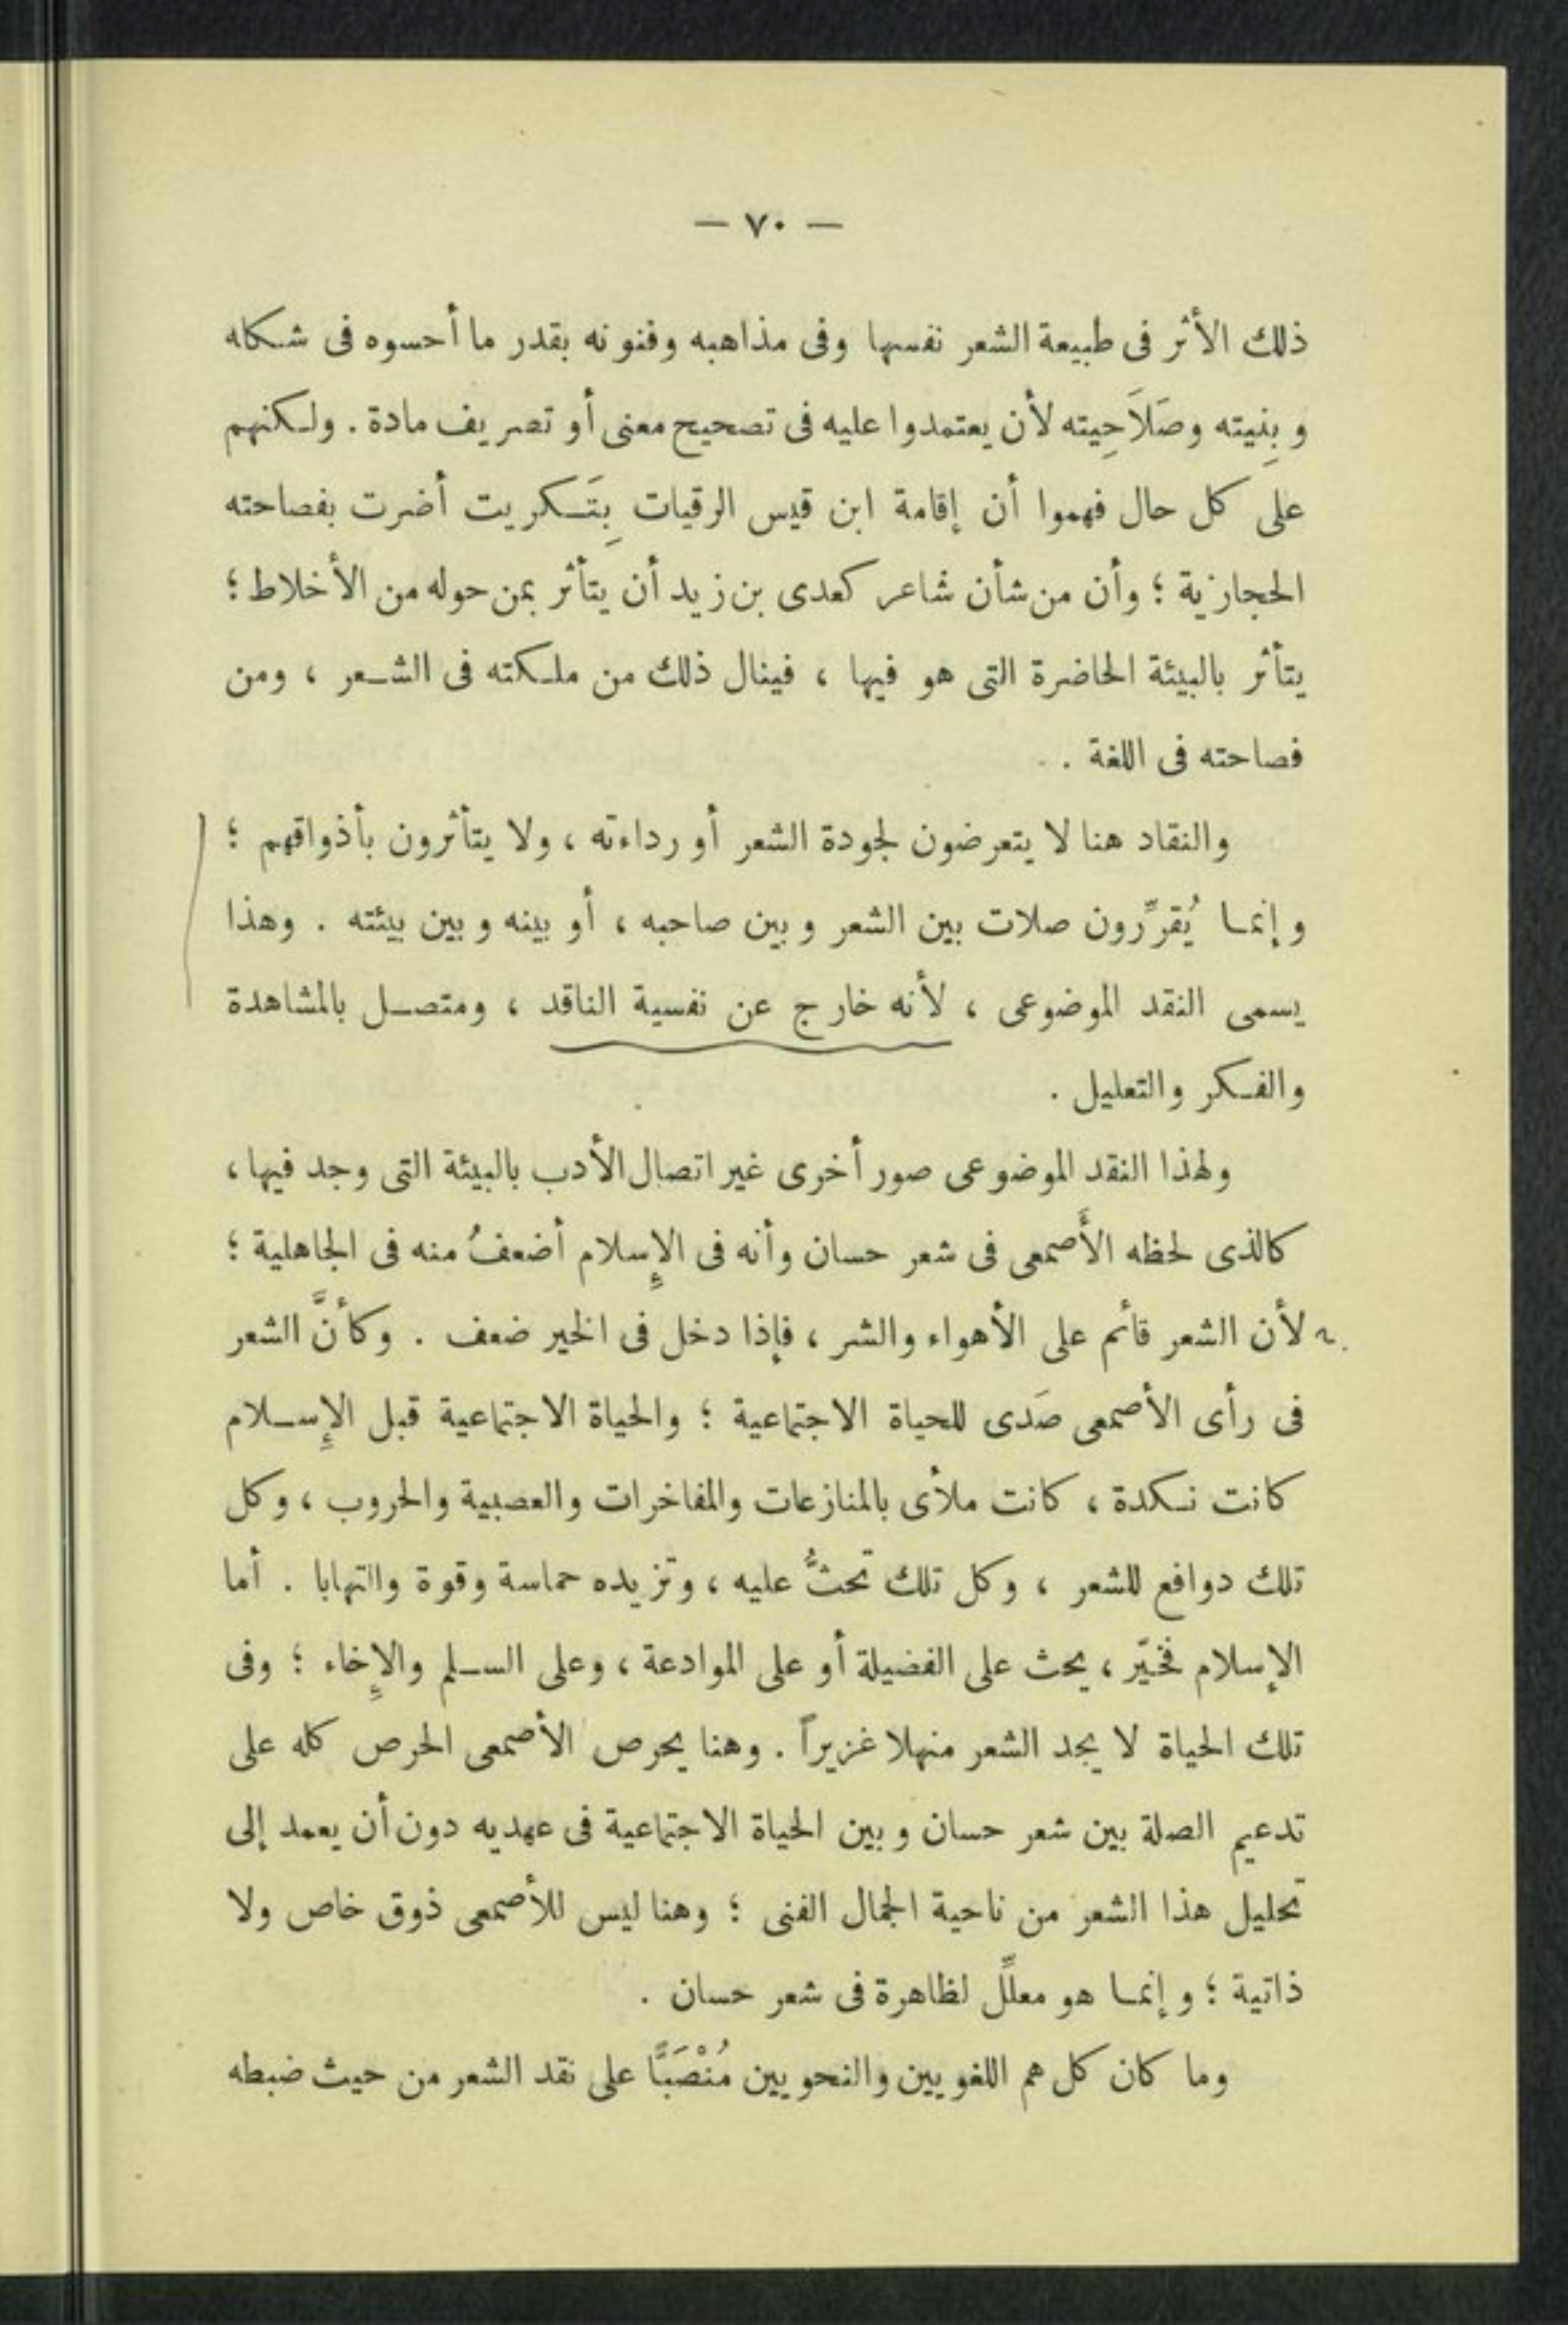 — ٧٠ —
ذلك الأثر فى طبيعة الشعر نفسها وفى مذاهبه وفنونه بقدر ما أحسوه فى شكله
وبِنيته وصَلاَحِيته لأن يعتمدوا عليه فى تصحيح معنى أو تصريف مادة . ولكنهم
على كل حال فهموا أن إقامة ابن قيس الرقيات بِتَكريت أضرت بفصاحته
الحجازية ؛ وأن من شأن شاعر كعدى بن زيد أن يتأثر بمن حوله من الأخلاط ؛
يتأثر بالبيئة الحاضرة التى هو فيها ، فينال ذلك من ملكته فى الشعر ، ومن
فصاحته فى اللغة .
والنقاد هنا لا يتعرضون لجودة الشعر أو رداءته ، ولا يتأثرون بأذواقهم ؛
وإنما يُقرِّرون صلات بين الشعر وبين صاحبه ، أو بينه وبين بيئته . وهذا
يسمى النقد الموضوعى ، لأنه خارج عن نفسية الناقد ، ومتصل بالمشاهدة
والفكر والتعليل .
ولهذا النقد الموضوعى صور أخرى غير اتصال الأدب بالبيئة التى وجد فيها ،
كالذى لحظه الأَصمعى فى شعر حسان وأنه فى الإِسلام أضعفُ منه فى الجاهلية ؛
لأن الشعر قائم على الأهواء والشر ، فإذا دخل فى الخير ضعف . وكأنَّ الشعر
فى رأى الأصمعى صَدى للحياة الاجتماعية ؛ والحياة الاجتماعية قبل الإِسلام
كانت نكدة ، كانت ملأى بالمنازعات والمفاخرات والعصبية والحروب ، وكل
تلك دوافع للشعر ، وكل تلك تحثُّ عليه ، وتزيده حماسة وقوة والتهابا . أما
الإسلام فخيّر ، يحث على الفضيلة أو على الموادعة ، وعلى السلم والإِخاء ؛ وفى
تلك الحياة لا يجد الشعر منهلا غزيراً . وهنا يحرص الأصمعى الحرص كله على
تدعيم الصلة بين شعر حسان وبين الحياة الاجتماعية فى عهديه دون أن يعمد إلى
تحليل هذا الشعر من ناحية الجمال الفنى ؛ وهنا ليس للأصمعى ذوق خاص ولا
ذاتية ؛ وإنما هو معلِّل لظاهرة فى شعر حسان .
وما كان كل هم اللغويين والنحويين مُنْصَبًّا على نقد الشعر من حيث ضبطه